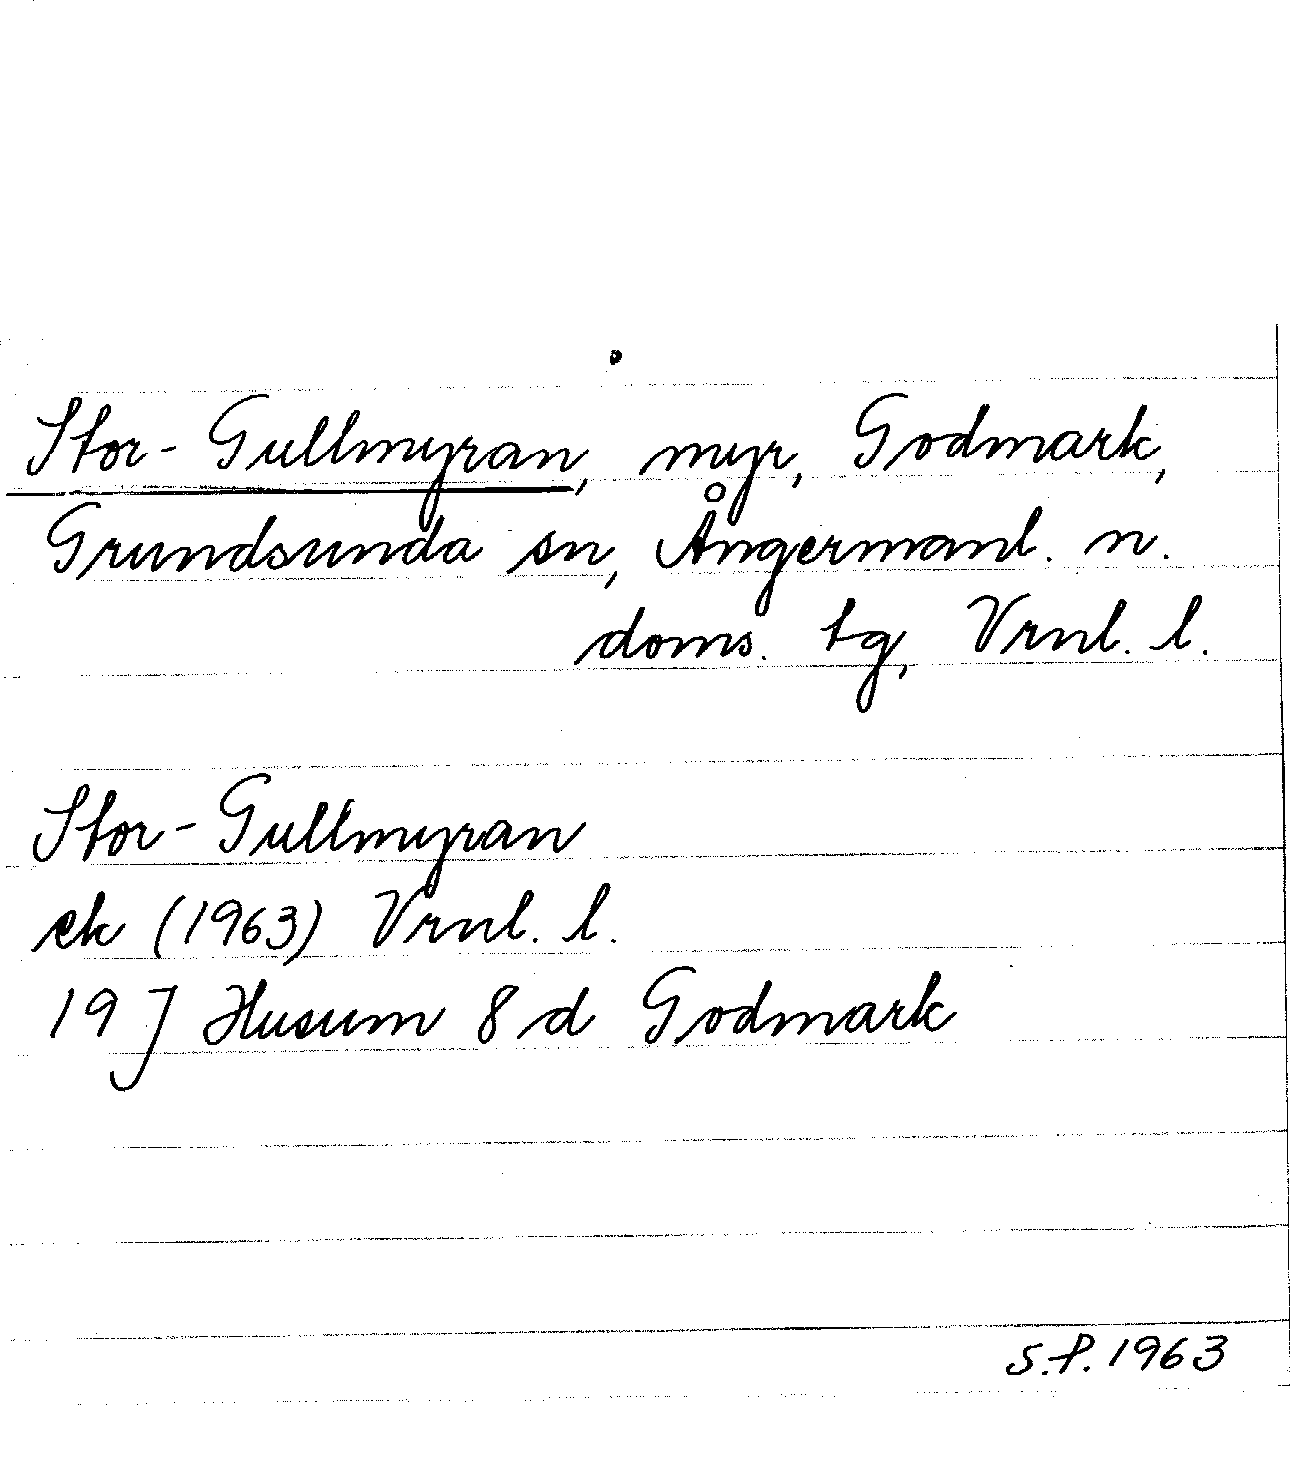 Stor-Gullmyran, myr, Godmark,
Grundsunda sn, Ångermanl. n.
doms. tg, Vrnl. l.
Stor-Gullmyran
ek (1963) Vrnl. l.
19 J Husum 8 d Godmark
S.P. 1963